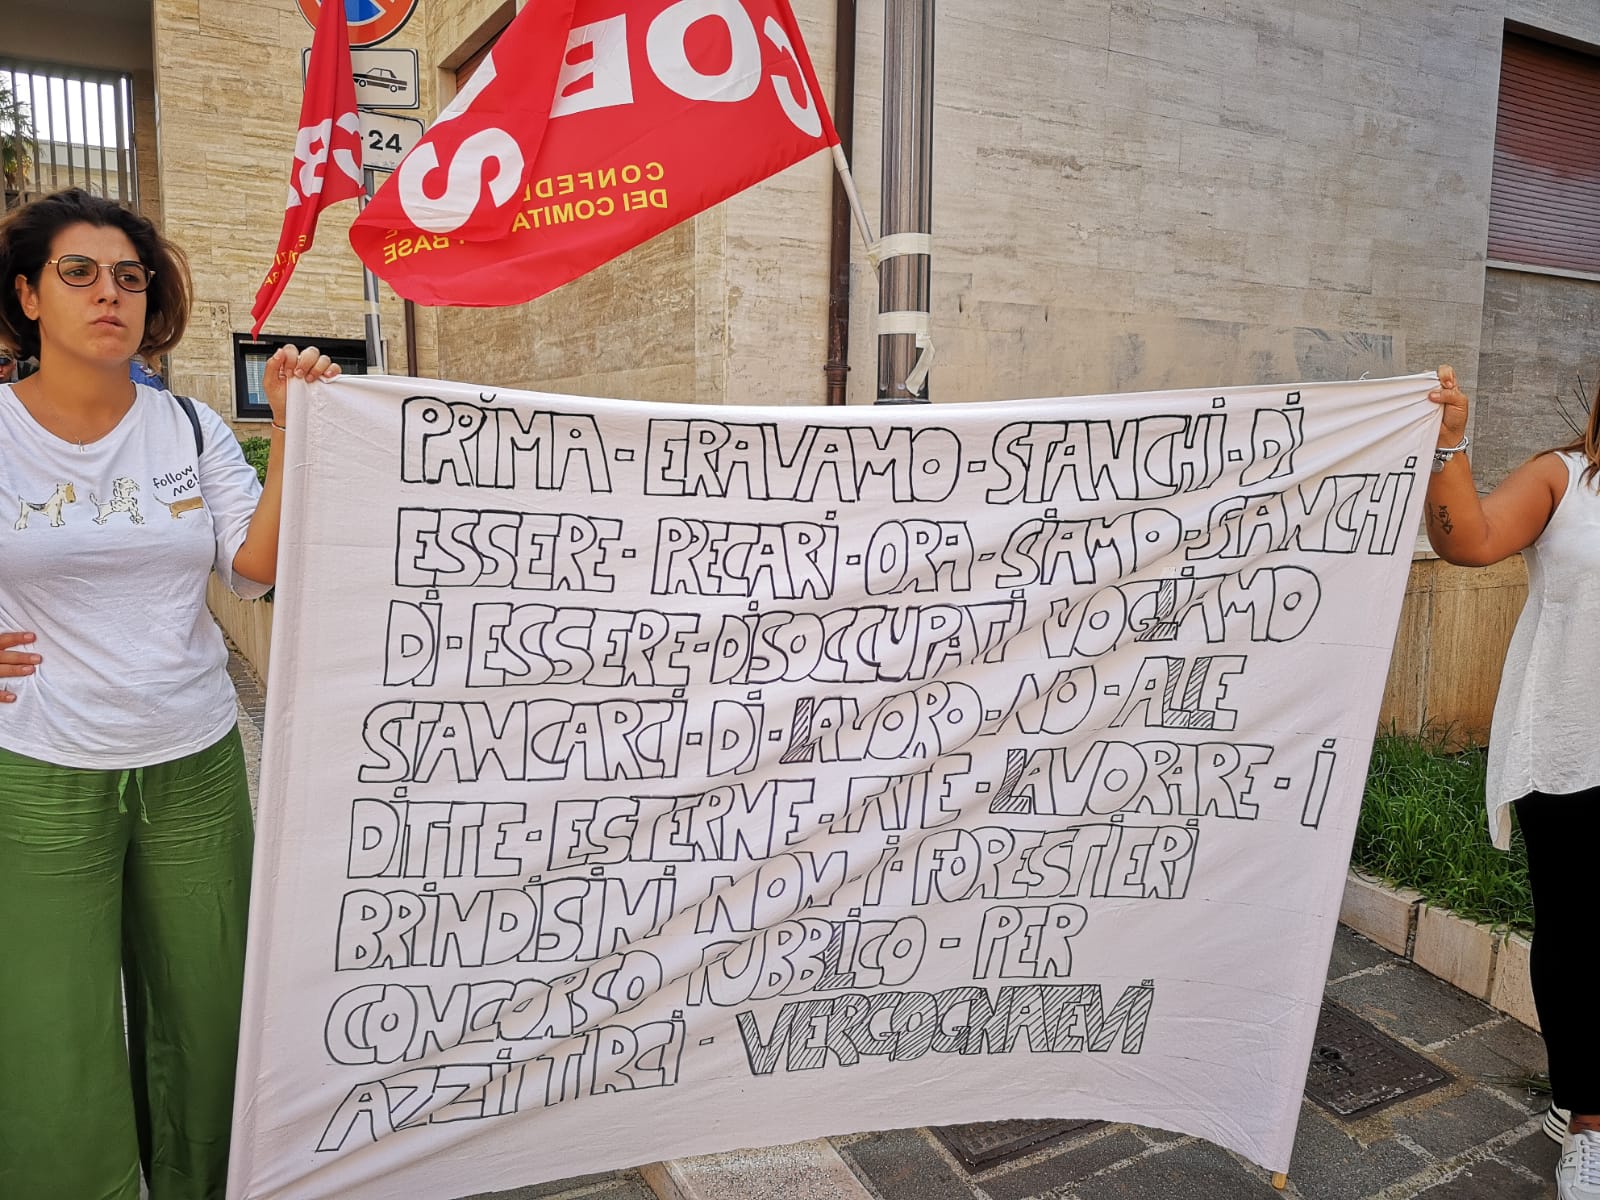 COBAS
CONFEDE
DEI COMITA
BASE
24
follow
me!
PRIMA - ERAVAMO - STANCHI - DI
ESSERE - PRECARI - ORA - SIAMO - STANCHI
DI - ESSERE - DISOCCUPATI VOGLIAMO
STANCARCI - DI - LAVORO - NO - ALLE
DITTE - ESTERNE - FATE - LAVORARE - I
BRINDISINI NON - I - FORESTIERI
CONCORSO PUBBLICO - PER
AZZITTIRCI - VERGOGNATEVI